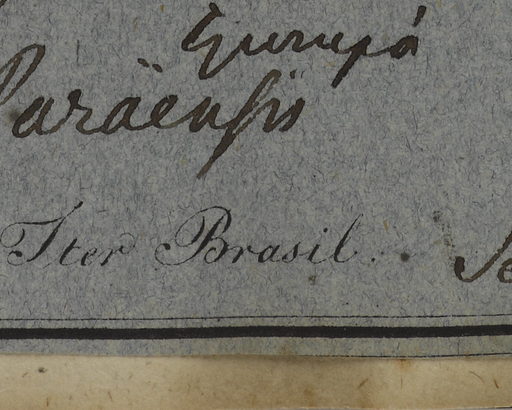 Gurupá
Paraënsis
Iter Brasil. Se